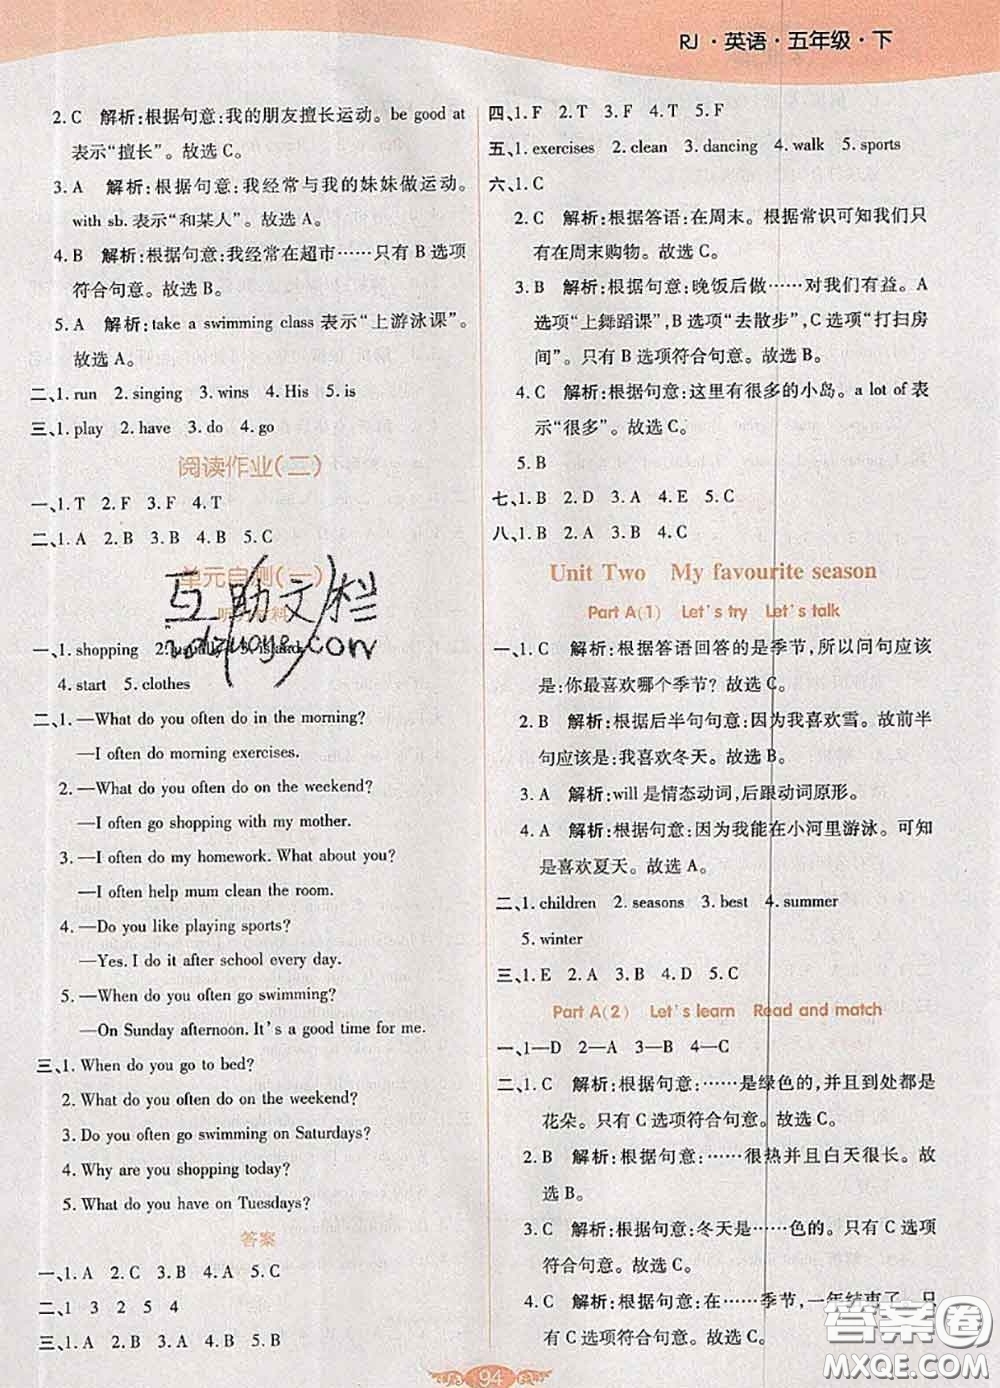 RJ·英语·五年级·下
2. C 解析:根据句意:我的朋友擅长运动。be good at
表示“擅长”。故选 C。
3. A 解析:根据句意:我经常与我的妹妹做运动。
with sb. 表示“和某人”。故选 A。
4. B 解析:根据句意:我经常在超市……只有 B 选项
符合句意。故选 B。
5. A 解析:take a swimming class 表示“上游泳课”。
故选 A。
二、1. run 2. singing 3. wins 4. His 5. is
三、1. play 2. have 3. do 4. go
阅读作业(二)
一、1. T 2. F 3. F 4. T
二、1. A 2. B 3. B 4. B 5. C
单元自测(一)
一、1. shopping 2. usually 3. island
4. start 5. clothes
二、1. —What do you often do in the morning?
—I often do morning exercises.
2. —What do you often do on the weekend?
—I often go shopping with my mother.
3. —I often do my homework. What about you?
—I often help mum clean the room.
4. —Do you like playing sports?
—Yes. I do it after school every day.
5. —When do you often go swimming?
—On Sunday afternoon. It's a good time for me.
三、1. When do you go to bed?
2. What do you often do on the weekend?
3. Do you often go swimming on Saturdays?
4. Why are you shopping today?
5. What do you have on Tuesdays?
答案
一、1. A 2. C 3. B 4. A 5. C
二、1 3 2 5 4
三、1. A 2. B 3. A 4. B 5. B
四、1. F 2. T 3. T 4. F 5. F
五、1. exercises 2. clean 3. dancing 4. walk 5. sports
六、1. C
2. C 解析:根据答语:在周末。根据常识可知我们只
有在周末购物。故选 C。
3. B 解析:根据句意:晚饭后做……对我们有益。A
选项“上舞蹈课”,B 选项“去散步”,C 选项“打扫房
间”。只有 B 选项符合句意。故选 B。
4. C 解析:根据句意:这里有很多的小岛。a lot of 表
示“很多”。故选 C。
5. B
七、1. B 2. D 3. A 4. E 5. C
八、1. B 2. A 3. B 4. C
Unit Two My favourite season
Part A(1) Let's try Let's talk
一、1. C 解析:根据答语回答的是季节,所以问句应该
是:你最喜欢哪个季节?故选 C。
2. B 解析:根据后半句句意:因为我喜欢雪。故前半
句应该是:我喜欢冬天。故选 B。
3. A 解析:will 是情态动词,后跟动词原形。
4. A 解析:根据句意:因为我能在小河里游泳。可知
是喜欢夏天。故选 A。
二、1. children 2. seasons 3. best 4. summer
5. winter
三、1. E 2. A 3. B 4. D 5. C
Part A(2) Let's learn Read and match
一、1—D 2—A 3—B 4—C
二、1. C 解析:根据句意:……是绿色的,并且到处都是
花朵。只有 C 选项符合句意。故选 C。
2. B 解析:根据句意:……很热并且白天很长。故
选 B。
3. C 解析:根据句意:冬天是……色的。只有 C 选项
符合句意。故选 C。
4. C 解析:根据句意:在……季节,一年结束了。只
有 C 选项符合句意。故选 C。
94
互助文档
答案圈
MXQE.COM